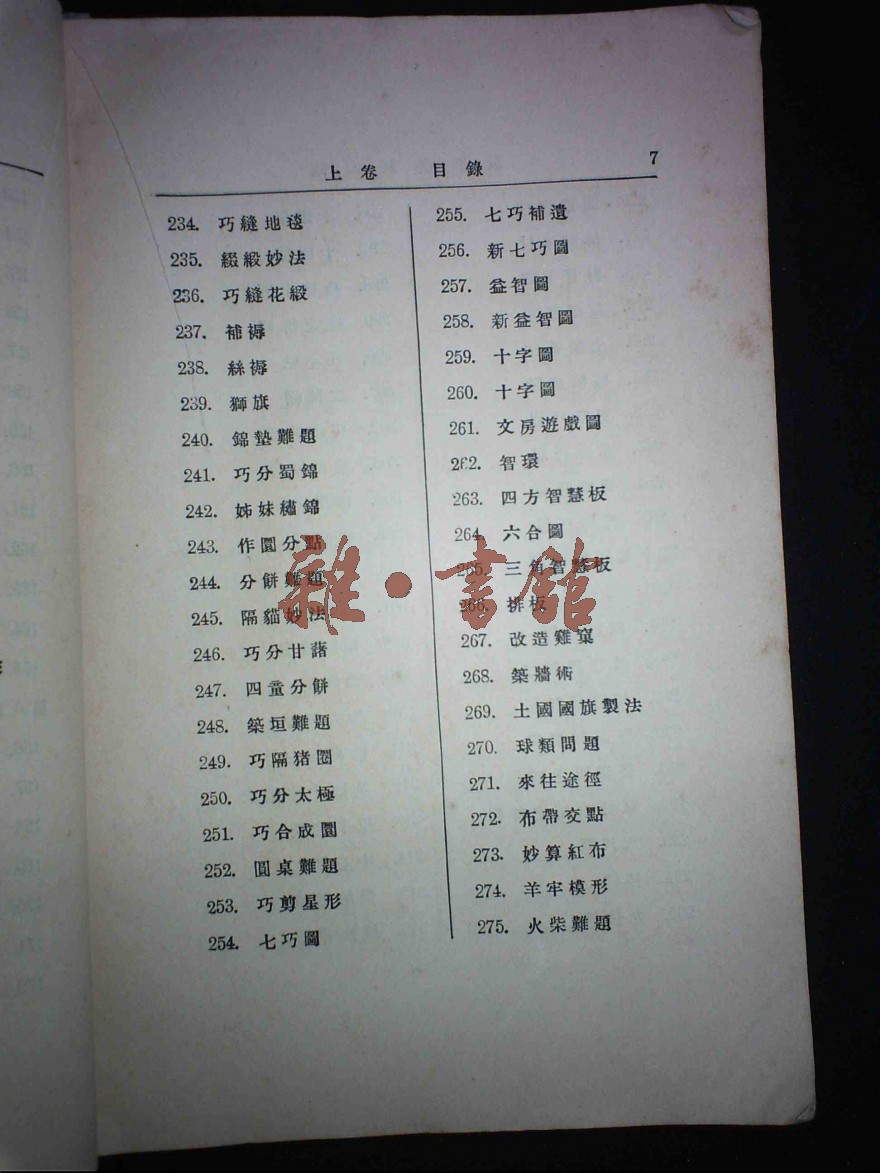 上卷 目錄 7
234. 巧縫地毯
235. 綴緞妙法
236. 巧縫花緞
237. 補褥
238. 絲褥
239. 獅旗
240. 錦墊難題
241. 巧分蜀錦
242. 姊妹繡錦
243. 作圜分點
244. 分餅難題
245. 隔貓妙法
246. 巧分甘藷
247. 四童分餅
248. 築垣難題
249. 巧隔猪圈
250. 巧分太極
251. 巧合成圜
252. 圓桌難題
253. 巧剪星形
254. 七巧圖
255. 七巧補遺
256. 新七巧圖
257. 益智圖
258. 新益智圖
259. 十字圖
260. 十字圖
261. 文房遊戲圖
262. 智環
263. 四方智慧板
264. 六合圖
265. 三角智慧板
266. 排板
267. 改造雞窠
268. 築牆術
269. 土國國旗製法
270. 球類問題
271. 來往途徑
272. 布帶交點
273. 妙算紅布
274. 羊牢模形
275. 火柴難題
雜·書館